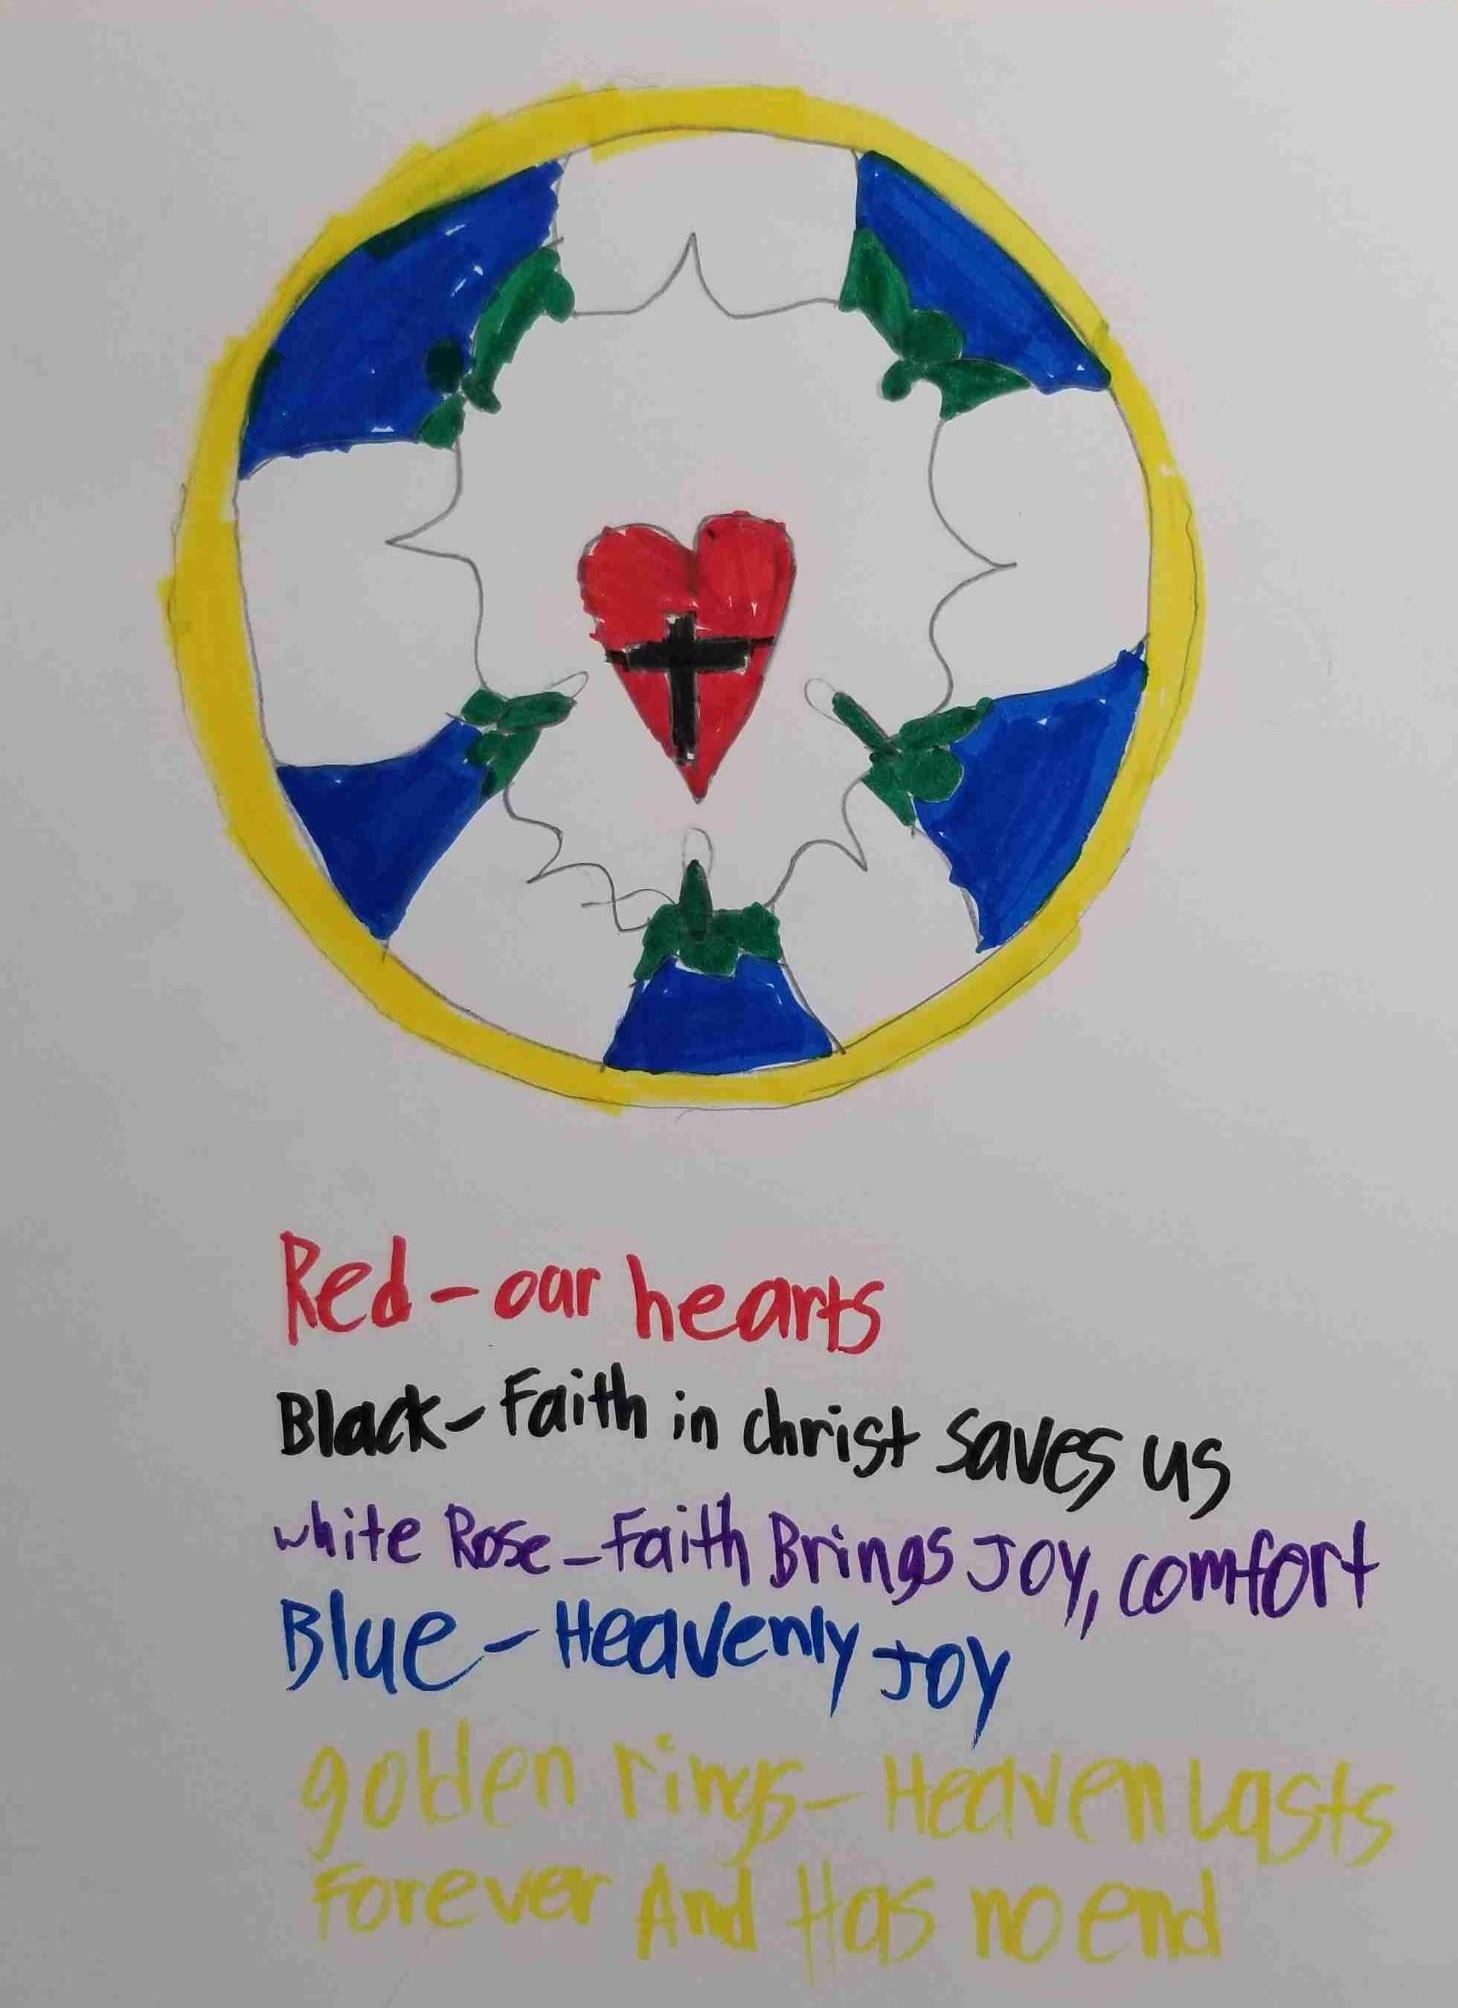 Red - our hearts
Black - Faith in christ saves us
white Rose - Faith Brings Joy, comfort
Blue - Heavenly Joy
golden rings - Heaven Lasts
Forever And Has no end